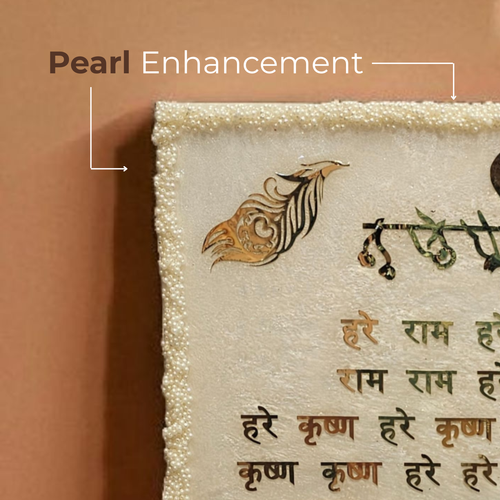 Pearl Enhancement
हरे राम हरे
राम राम हरे
हरे कृष्ण हरे कृष्ण
कृष्ण कृष्ण हरे हरे